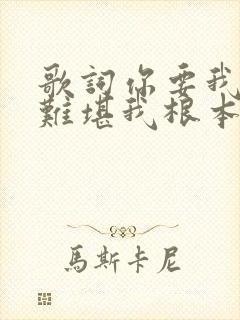 歌詞你要我
難堪我根本
馬斯卡尼